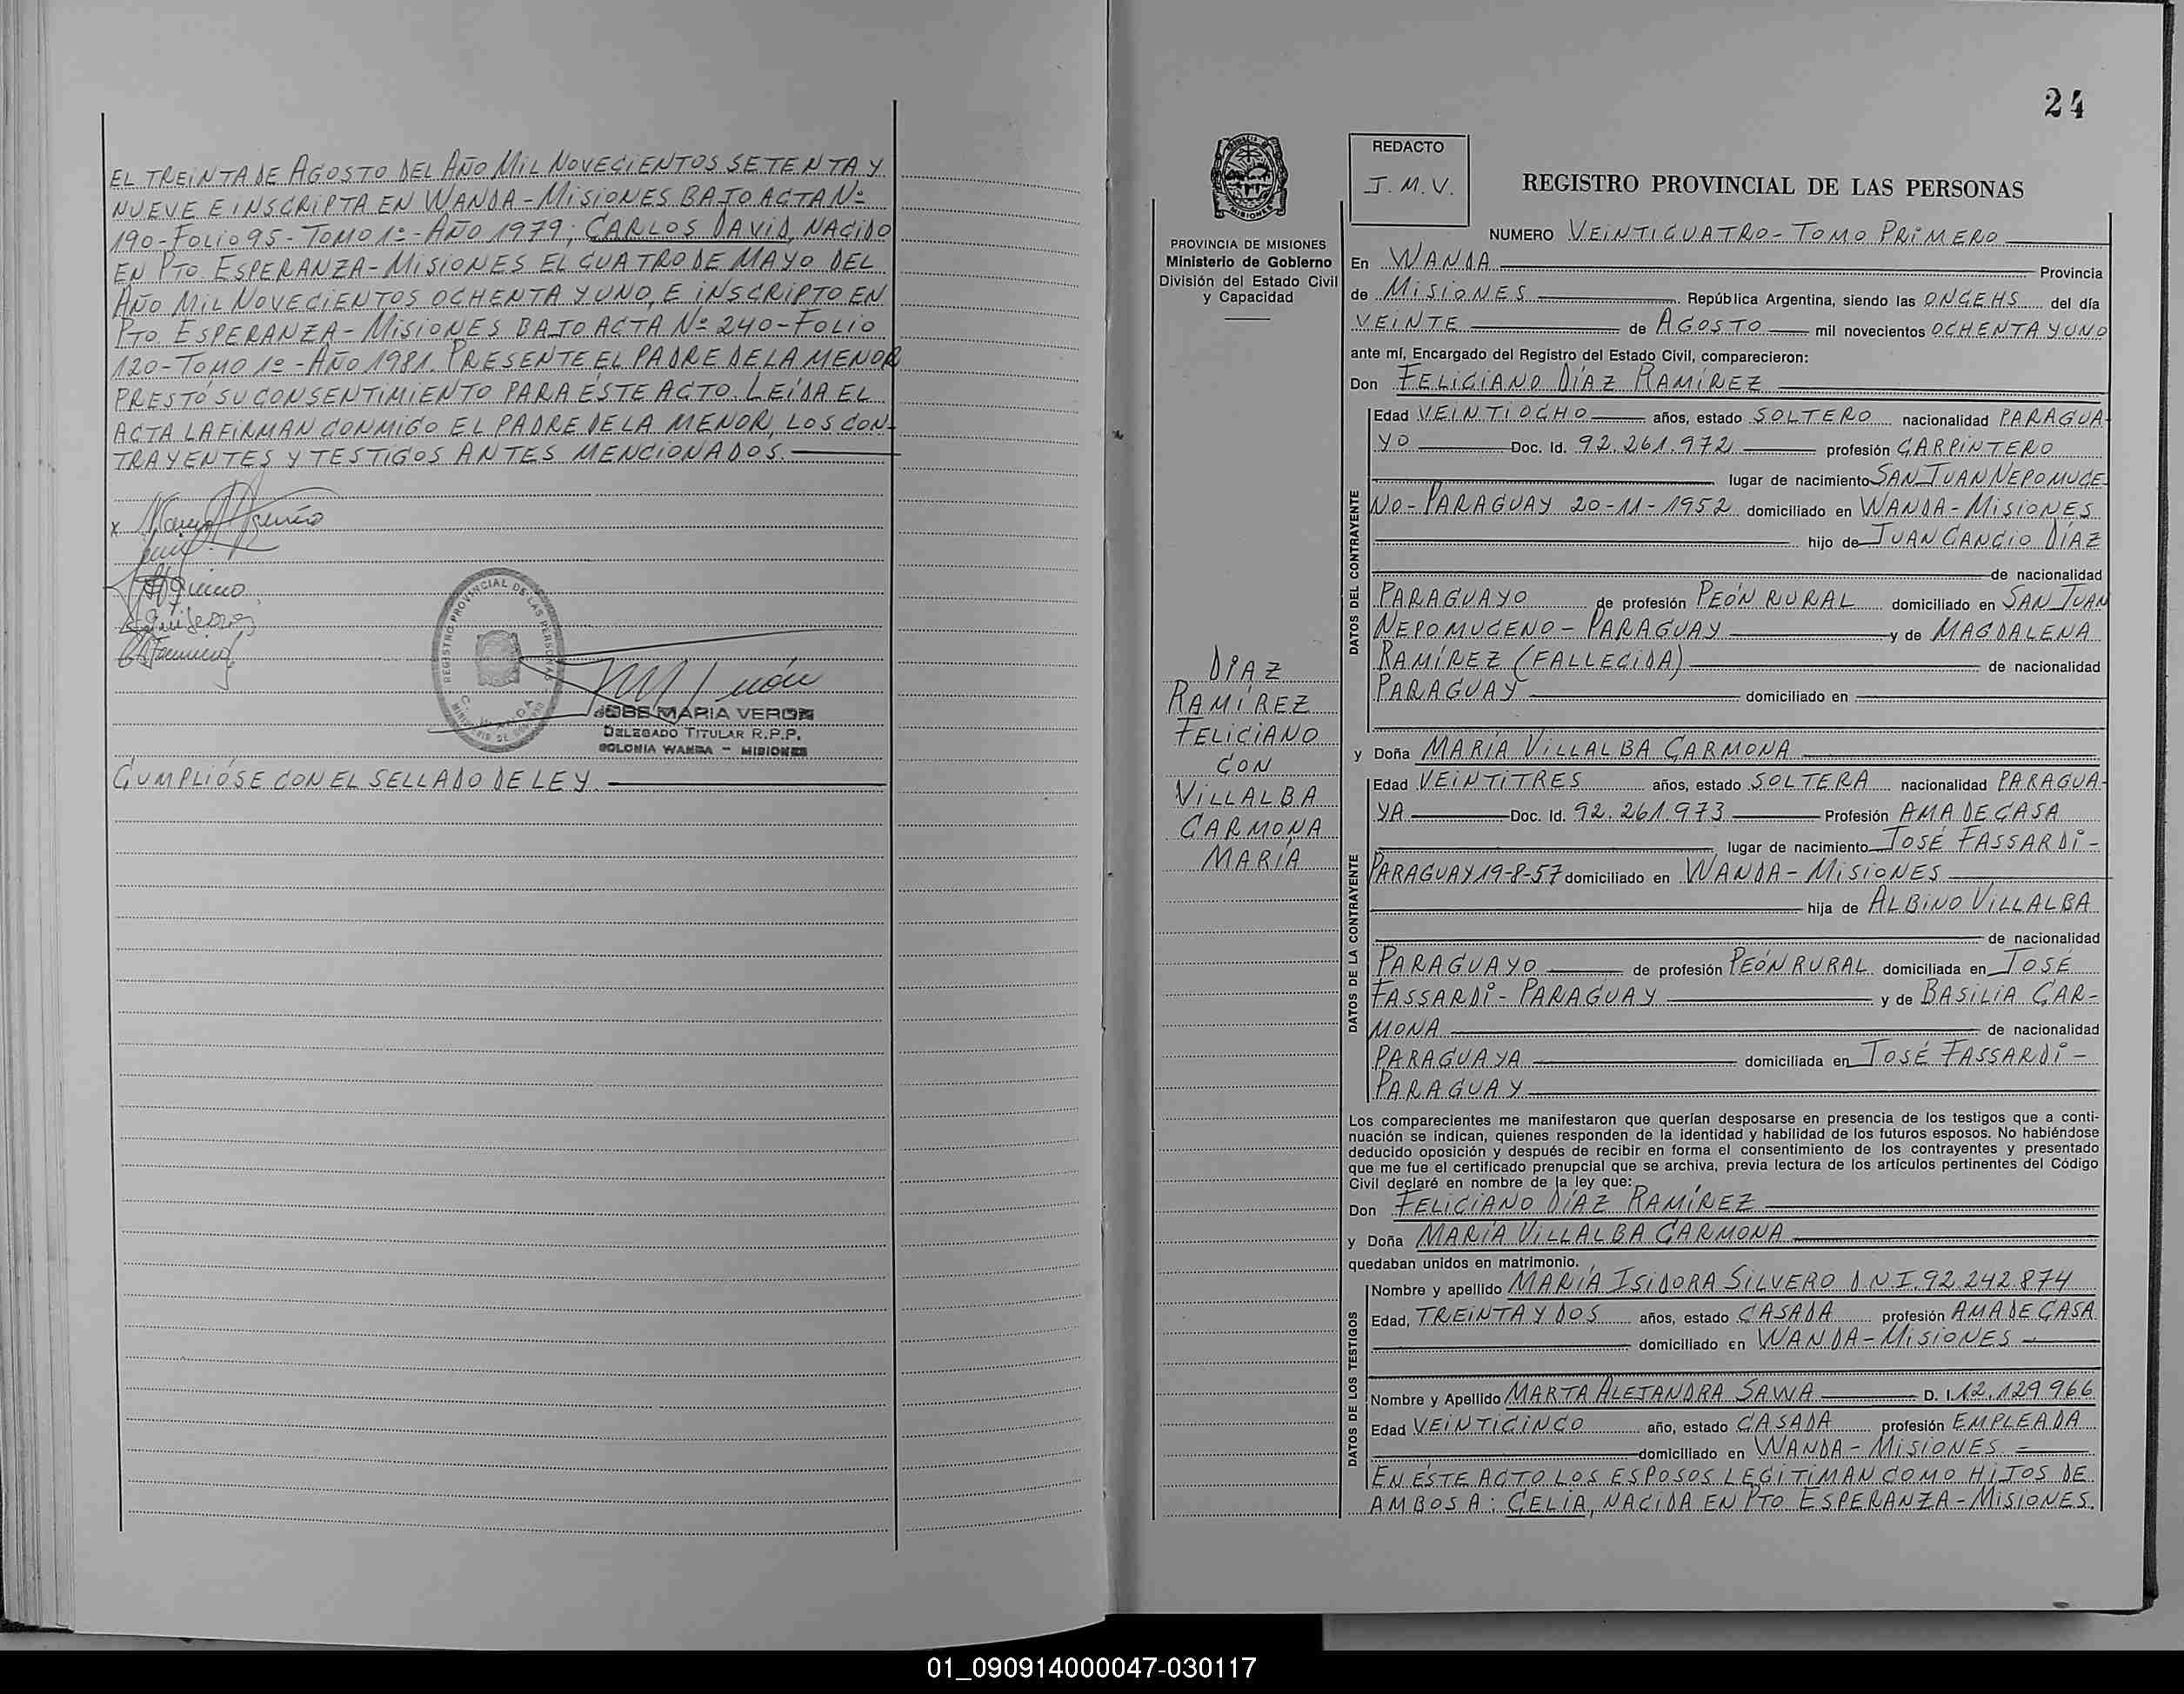 EL TREINTA DE AGOSTO DEL AÑO MIL NOVECIENTOS SETENTA Y
NUEVE E INSCRIPTA EN WANDA - MISIONES BAJO ACTA Nº
190 - FOLIO 95 - TOMO 1º - AÑO 1979; CARLOS DAVID, NACIDO
EN PTO. ESPERANZA - MISIONES EL CUATRO DE MAYO DEL
AÑO MIL NOVECIENTOS OCHENTA Y UNO, E INSCRIPTO EN
PTO. ESPERANZA - MISIONES BAJO ACTA Nº 240 - FOLIO
120 - TOMO 1º - AÑO 1981. PRESENTE EL PADRE DE LA MENOR
PRESTÓ SU CONSENTIMIENTO PARA ÉSTE ACTO. LEÍDA EL
ACTA LA FIRMAN CONMIGO EL PADRE DE LA MENOR, LOS CON-
TRAYENTES Y TESTIGOS ANTES MENCIONADOS.
REGISTRO PROVINCIAL DE LAS PERSONAS
JOSE MARIA VERON
DELEGADO TITULAR R.P.P.
COLONIA WANDA - MISIONES
CUMPLIÓSE CON EL SELLADO DE LEY.
24
REDACTO
J.M.V.
REGISTRO PROVINCIAL DE LAS PERSONAS
MISIONES
PROVINCIA DE MISIONES
Ministerio de Gobierno
División del Estado Civil
y Capacidad
DIAZ
RAMÍREZ
FELICIANO
CON
VILLALBA
CARMONA
MARÍA
NUMERO VEINTICUATRO - TOMO PRIMERO
En WANDA Provincia
de MISIONES República Argentina, siendo las ONCE HS del día
VEINTE de AGOSTO mil novecientos OCHENTA Y UNO
ante mí, Encargado del Registro del Estado Civil, comparecieron:
Don FELICIANO DÍAZ RAMÍREZ
DATOS DEL CONTRAYENTE
Edad VEINTIOCHO años, estado SOLTERO nacionalidad PARAGUA-
YO Doc. Id. 92.261.972 profesión CARPINTERO
lugar de nacimiento SAN JUAN NEPOMUCE-
NO - PARAGUAY 20-11-1952 domiciliado en WANDA - MISIONES
hijo de JUAN CANCIO DÍAZ
de nacionalidad
PARAGUAYO de profesión PEÓN RURAL domiciliado en SAN JUAN
NEPOMUCENO - PARAGUAY y de MAGDALENA
RAMÍREZ (FALLECIDA) de nacionalidad
PARAGUAY domiciliado en
y Doña MARÍA VILLALBA CARMONA
DATOS DE LA CONTRAYENTE
Edad VEINTITRES años, estado SOLTERA nacionalidad PARAGUA-
YA Doc. Id. 92.261.973 Profesión AMA DE CASA
lugar de nacimiento JOSÉ FASSARDI -
PARAGUAY 19-8-57 domiciliado en WANDA - MISIONES
hija de ALBINO VILLALBA
de nacionalidad
PARAGUAYO de profesión PEÓN RURAL domiciliada en JOSÉ
FASSARDI - PARAGUAY y de BASILIA CAR-
MONA de nacionalidad
PARAGUAYA domiciliada en JOSÉ FASSARDI -
PARAGUAY
Los comparecientes me manifestaron que querían desposarse en presencia de los testigos que a conti-
nuación se indican, quienes responden de la identidad y habilidad de los futuros esposos. No habiéndose
deducido oposición y después de recibir en forma el consentimiento de los contrayentes y presentado
que me fue el certificado prenupcial que se archiva, previa lectura de los artículos pertinentes del Código
Civil declaré en nombre de la ley que:
Don FELICIANO DÍAZ RAMÍREZ
y Doña MARÍA VILLALBA CARMONA
quedaban unidos en matrimonio.
DATOS DE LOS TESTIGOS
Nombre y apellido MARÍA ISIDORA SILVERO D.N.I. 92.242.874
Edad, TREINTA Y DOS años, estado CASADA profesión AMA DE CASA
domiciliado en WANDA - MISIONES
Nombre y Apellido MARTA ALEJANDRA SAWA D. I. 12.129.966
Edad VEINTICINCO año, estado CASADA profesión EMPLEADA
domiciliado en WANDA - MISIONES
EN ÉSTE ACTO LOS ESPOSOS LEGITIMAN COMO HIJOS DE
AMBOS A: CELIA, NACIDA EN PTO ESPERANZA - MISIONES.
01_090914000047-030117